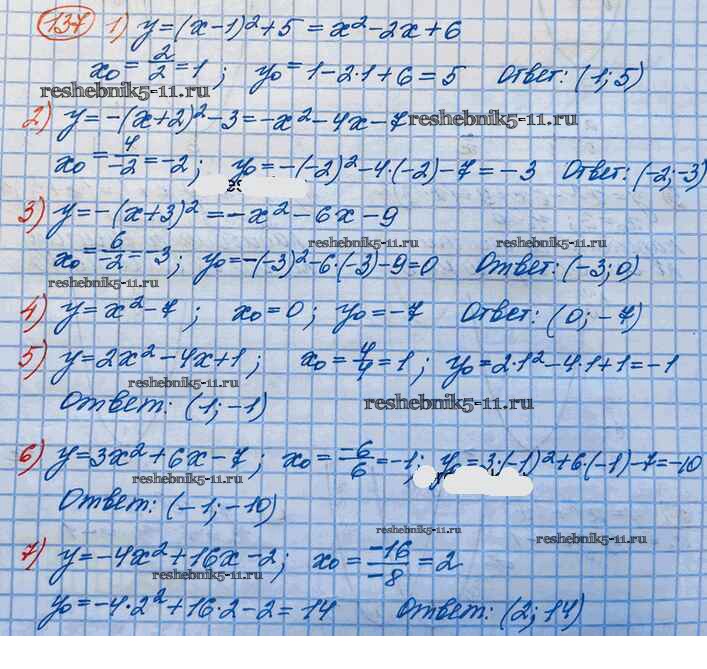 137 1) y=(x-1)²+5 = x²-2x+6
x₀ = 2/2 = 1 ; y₀ = 1-2·1+6 = 5 Ответ: (1; 5)
reshebnik5-11.ru
2) y = -(x+2)² - 3 = -x² - 4x - 7 reshebnik5-11.ru
x₀ = 4/-2 = -2; y₀ = -(-2)² - 4·(-2) - 7 = -3 Ответ: (-2; -3)
3) y = -(x+3)² = -x² - 6x - 9
reshebnik5-11.ru reshebnik5-11.ru
x₀ = 6/-2 = -3; y₀ = -(-3)² - 6·(-3) - 9 = 0 Ответ: (-3; 0)
reshebnik5-11.ru
4) y = x² - 7 ; x₀ = 0 ; y₀ = -7 Ответ: (0; -7)
5) y = 2x² - 4x + 1 ; x₀ = 4/4 = 1 ; y₀ = 2·1² - 4·1 + 1 = -1
reshebnik5-11.ru
Ответ: (1; -1) reshebnik5-11.ru
6) y = 3x² + 6x - 7 ; x₀ = -6/6 = -1; y₀ = 3·(-1)² + 6·(-1) - 7 = -10
reshebnik5-11.ru
Ответ: (-1; -10)
reshebnik5-11.ru reshebnik5-11.ru
7) y = -4x² + 16x - 2 ; x₀ = -16/-8 = 2
reshebnik5-11.ru
y₀ = -4·2² + 16·2 - 2 = 14 Ответ: (2; 14)